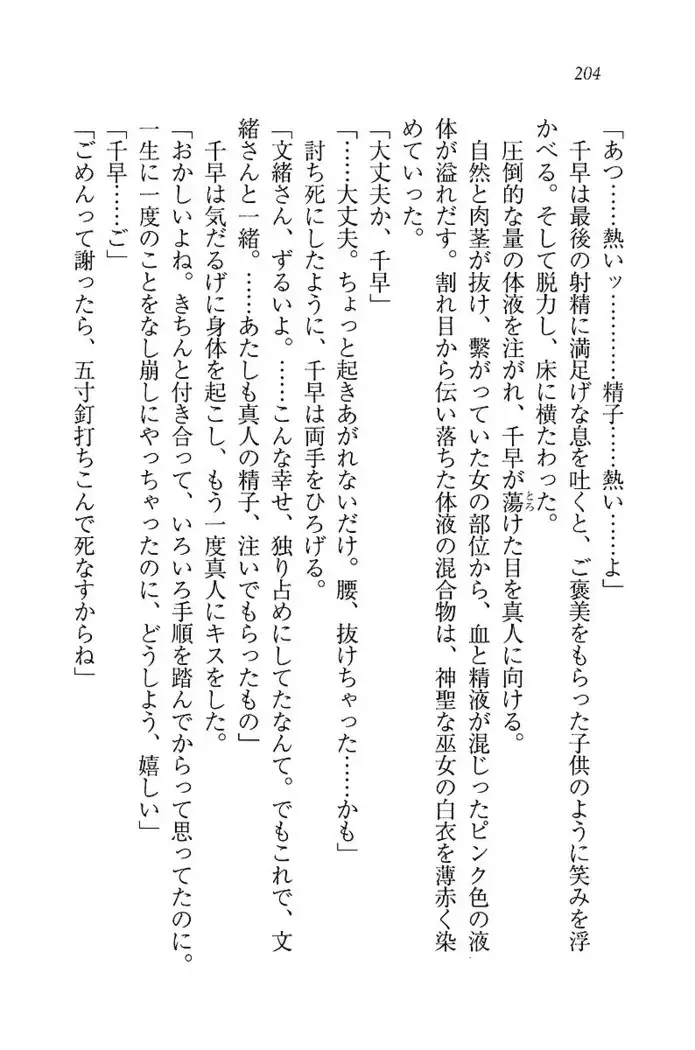 204
「あつ……熱いッ…………精子……熱い……よ」
千早は最後の射精に満足げな息を吐くと、ご褒美をもらった子供のように笑みを浮
かべる。そして脱力し、床に横たわった。
圧倒的な量の体液を注がれ、千早が蕩けた目を真人に向ける。
とろ
自然と肉茎が抜け、繋がっていた女の部位から、血と精液が混じったピンク色の液
体が溢れだす。割れ目から伝い落ちた体液の混合物は、神聖な巫女の白衣を薄赤く染
めていった。
「大丈夫か、千早」
「……大丈夫。ちょっと起きあがれないだけ。腰、抜けちゃった……かも」
討ち死にしたように、千早は両手をひろげる。
「文緒さん、ずるいよ。……こんな幸せ、独り占めにしてたなんて。でもこれで、文
緒さんと一緒。……あたしも真人の精子、注いでもらったもの」
千早は気だるげに身体を起こし、もう一度真人にキスをした。
「おかしいよね。きちんと付き合って、いろいろ手順を踏んでからって思ってたのに。
一生に一度のことをなし崩しにやっちゃったのに、どうしよう、嬉しい」
「千早……ご」
「ごめんって謝ったら、五寸釘打ちこんで死なすからね」